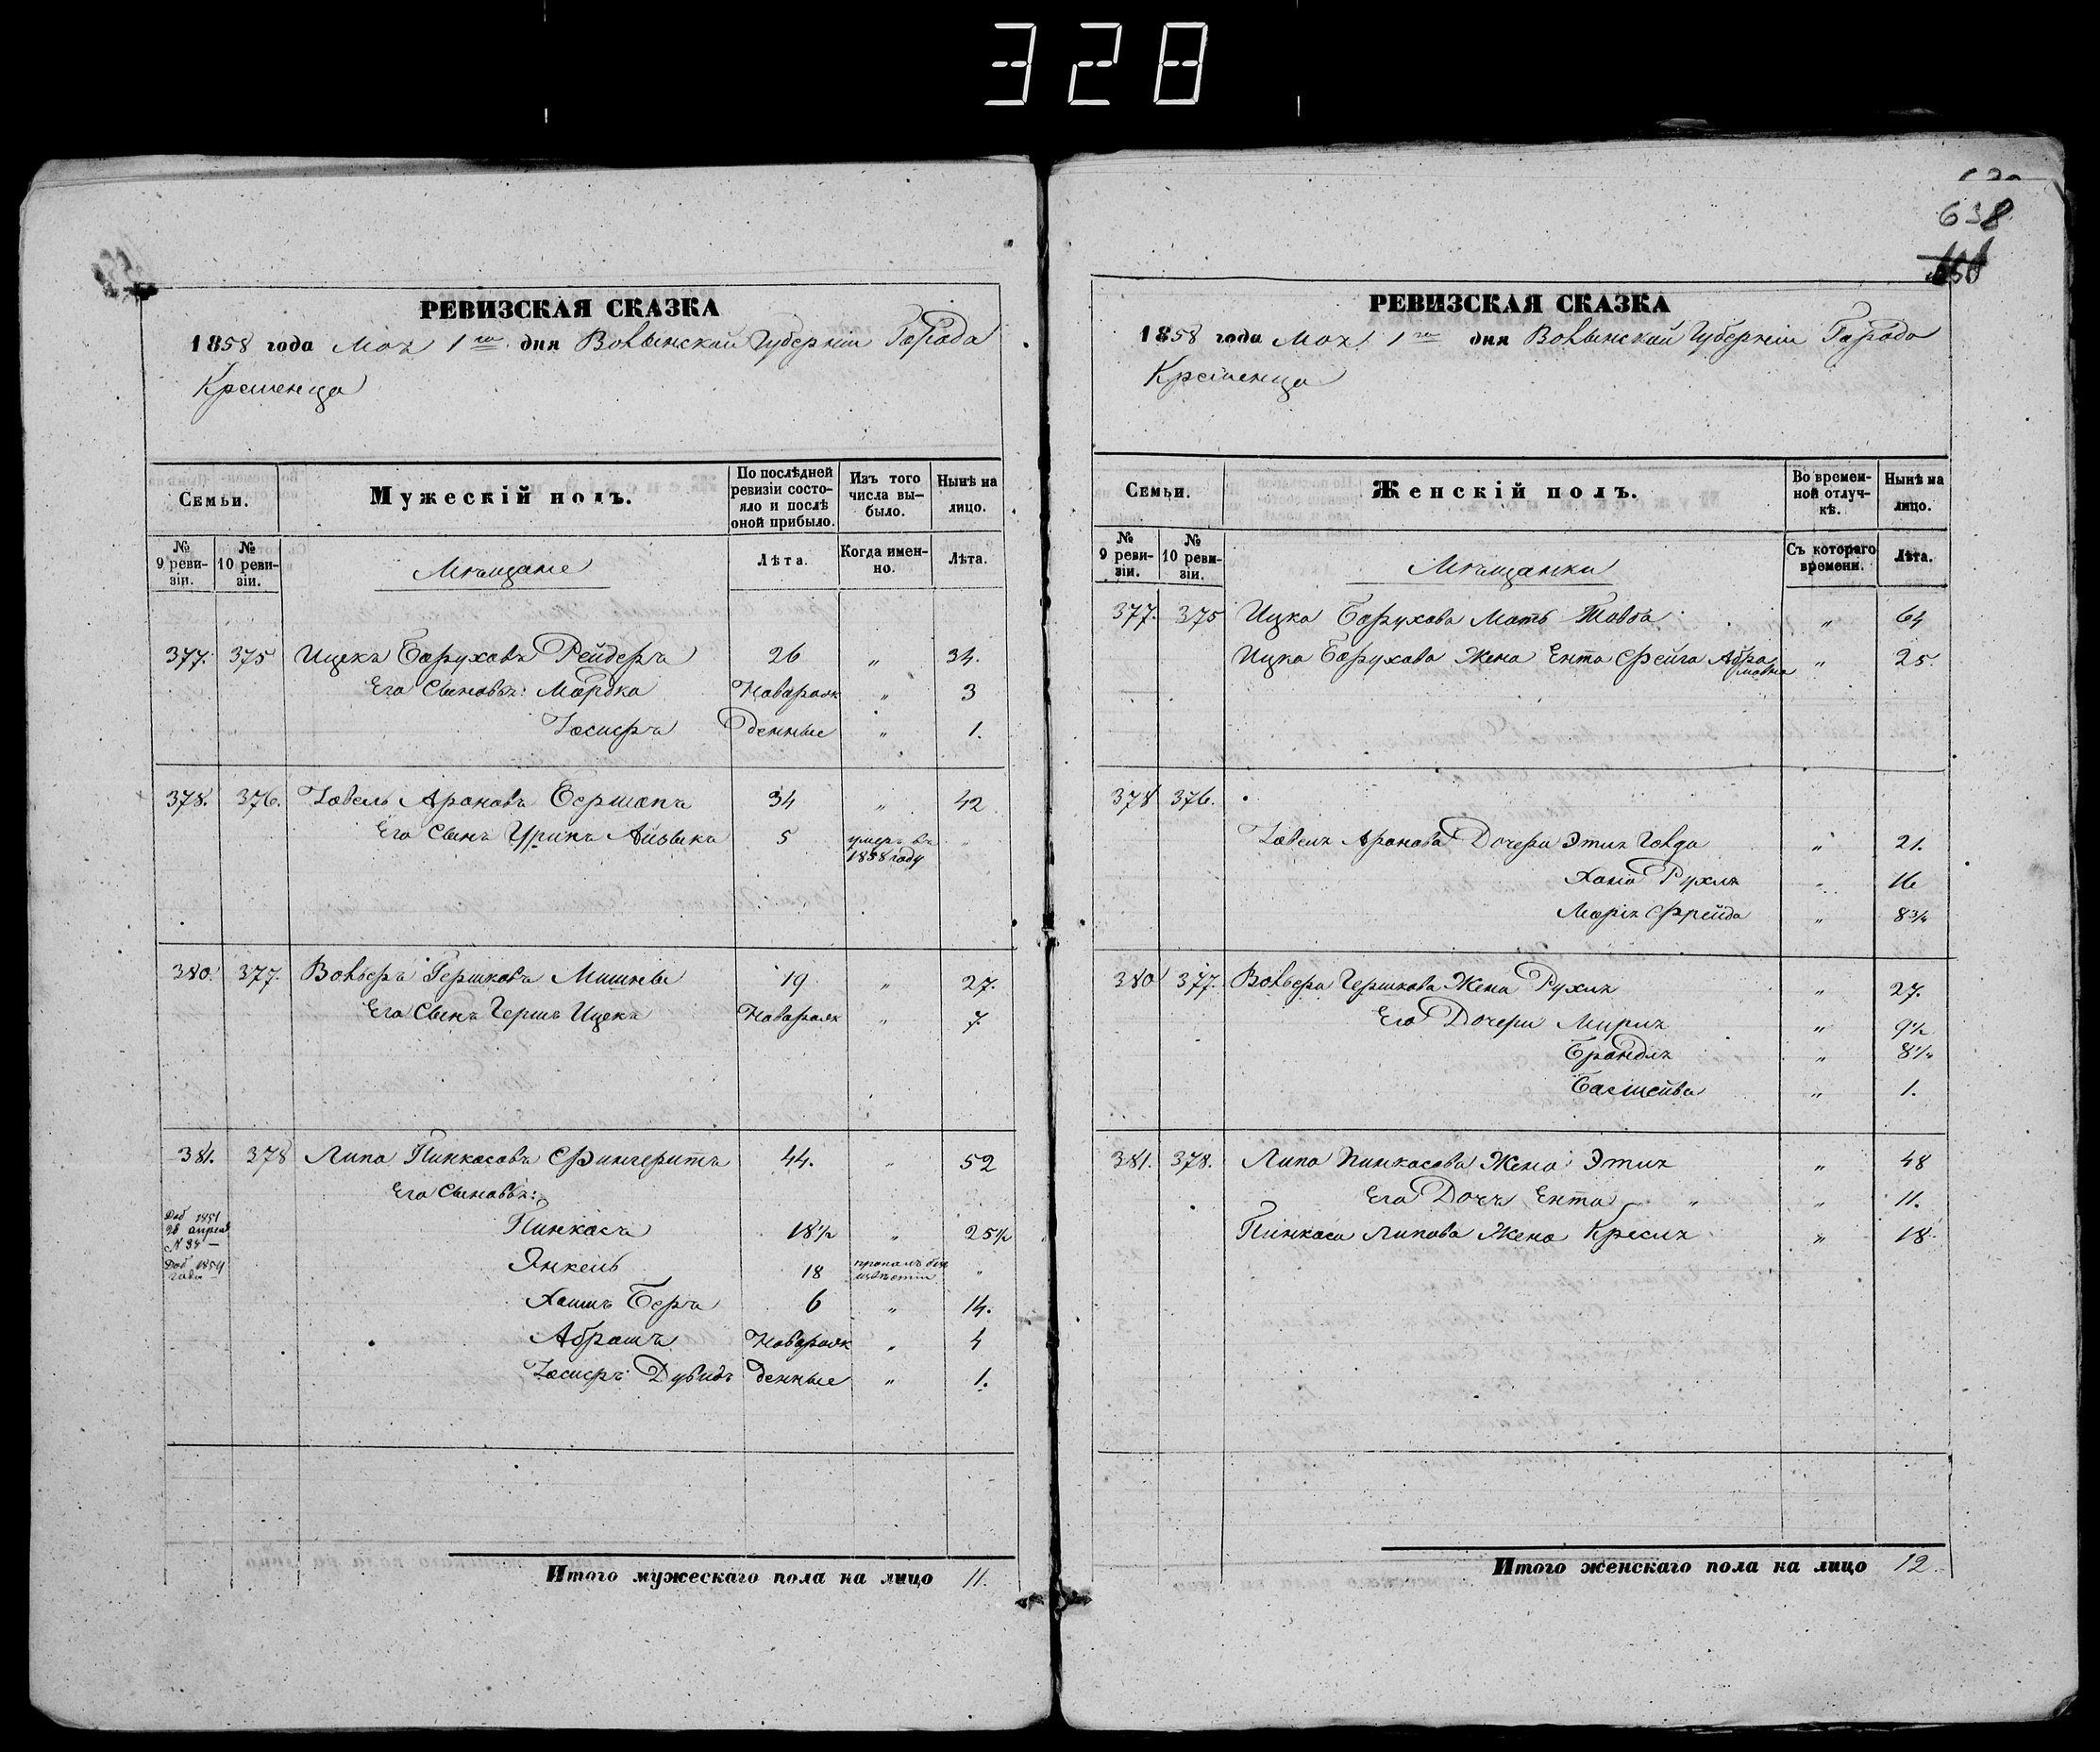 328
638
РЕВИЗСКАЯ СКАЗКА
1858 года Мая 1го дня Волынской Губерніи Города
Кременца
Семьи.
Мужескій полъ.
По послѣдней ревизіи состояло и послѣ оной прибыло.
Изъ того числа выбыло.
Нынѣ на лицо.
№ 9 ревизіи.
№ 10 ревизіи.
Мѣщане
Лѣта.
Когда именно.
Лѣта.
377. 375 Ицекъ Боруховъ Рейдеръ 26 „ 34.
Его Сыновья: Мордко Новорож „ 3
Іосифъ денные „ 1.
378. 376. Іовель Ароновъ Бершопъ 34 „ 42
Его Сынъ Урынъ Айзыкъ 5 умеръ въ 1858 году „
380. 377. Вольберъ Гершковъ Мишне 19 „ 27.
Его Сынъ Гершъ Ицекъ Новорож „ 7.
381. 378 Липа Пинкасовъ Фингерутъ 44. „ 52
Его Сыновья:
Доб 1851
28 апреля
№ 34 —
Пинкасъ 18½ „ 25½
Доб 1854
года
Янкель 18 пропалъ безъ извѣстія „
Хаимъ Беръ 6 „ 14.
Абрамъ Новорож „ 4
Іосифъ Дувидъ денные „ 1.
Итого мужескаго пола на лицо 11.
РЕВИЗСКАЯ СКАЗКА
1858 года Мая 1го дня Волынской Губерніи Города
Кременца
Семьи.
Женскій полъ.
Во временной отлучкѣ.
Нынѣ на лицо.
№ 9 ревизіи.
№ 10 ревизіи.
Мѣщанки
Съ котораго времени.
Лѣта.
377. 375 Ицка Борухова Мать Товба „ 64
Ицка Борухова Жена Ента Фейга Абрамовна „ 25.
378 376.
Іовеля Аронова Дочери Этия Голда „ 21.
Хана Рухля „ 16
Маріа Фрейда „ 8¾
380 377. Вольбера Гершкова Жена Рухля „ 27.
Его Дочери Миріа „ 9½
Брандля „ 8¼
Басшейва „ 1.
381. 378. Липа Пинкасова Жена Этия „ 48
Его Дочь Ента „ 11.
Пинкаса Липова Жена Кресля „ 18
Итого женскаго пола на лицо 12.